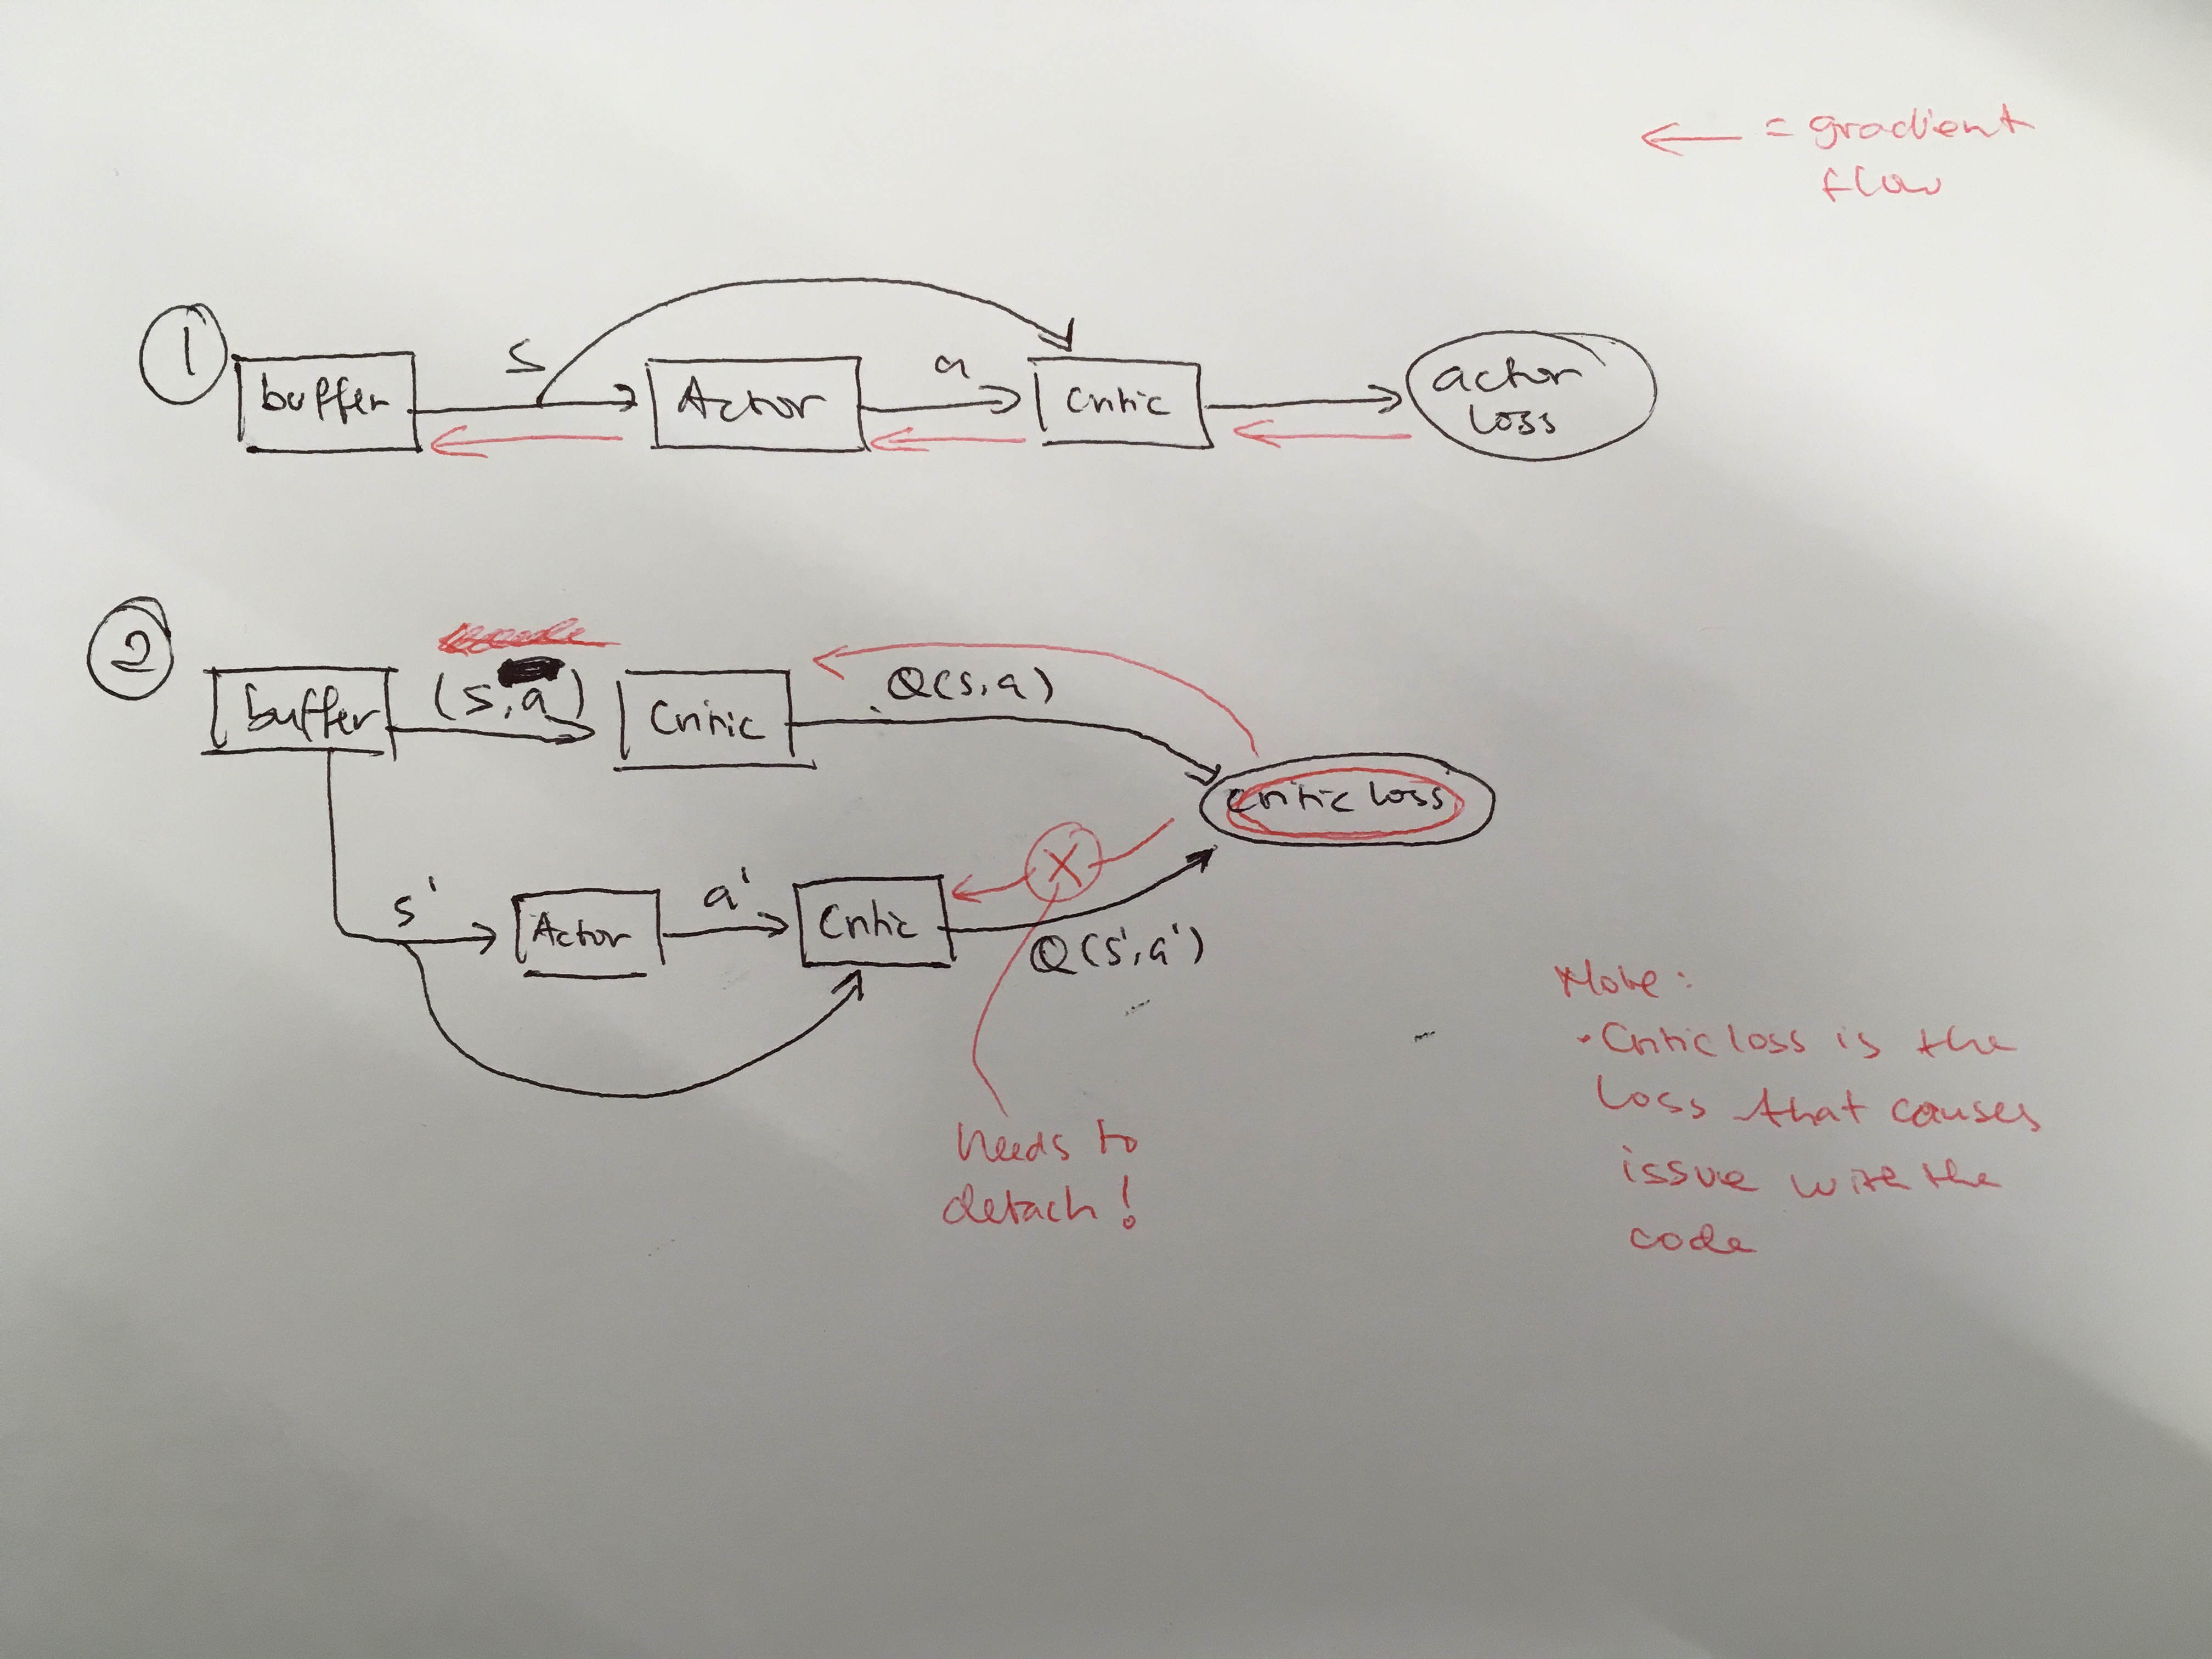 ← = gradient
flow
1
buffer
s
Actor
a
Critic
actor
loss
2
buffer
(s, a)
Critic
Q(s,a)
critic loss
s'
Actor
a'
Critic
X
Q(s',a')
needs to
detach!
Note:
• Critic loss is the
loss that causes
issue with the
code